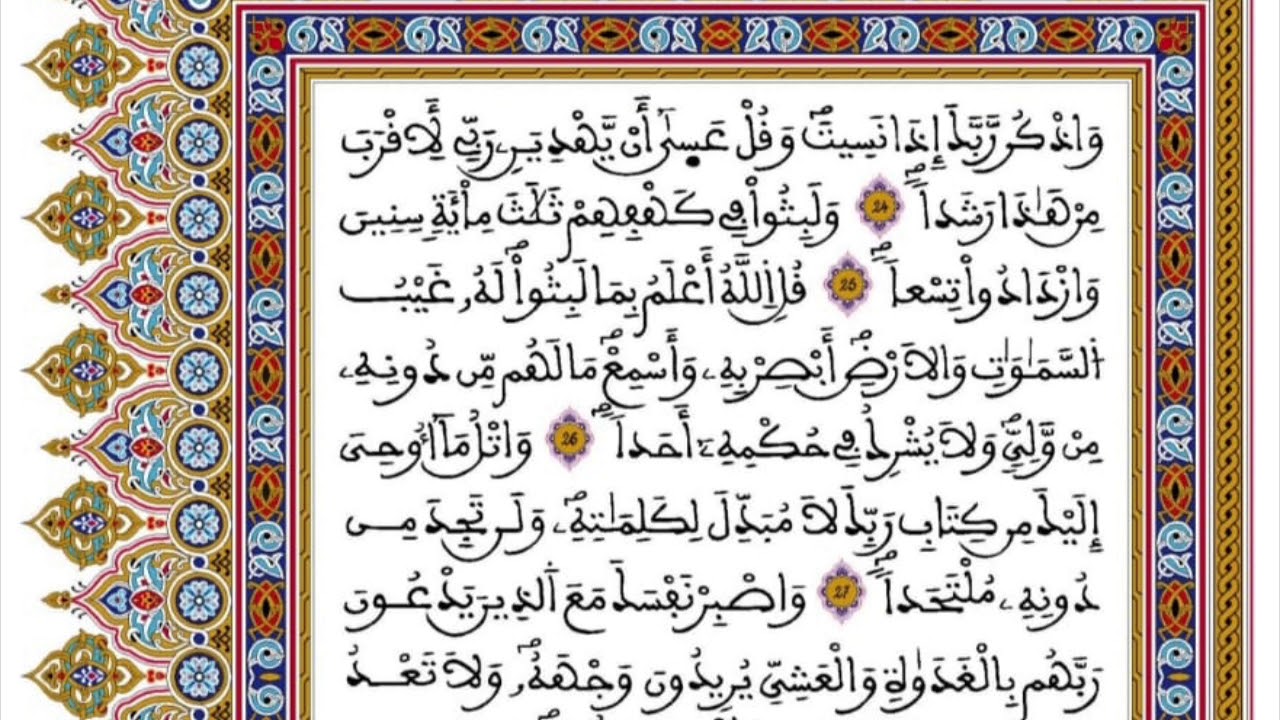 وَاذْكُر رَّبَّكَ إِذَا نَسِيتَۖ وَقُلْ عَسِىٰٓ أَنْ يَّهْدِيَنِۦ رَبِّے لِأَقْرَبَ
مِنْ هَٰذَا رَشَداٗۖ 24 وَلَبِثُواْ فِے كَهْفِهِمْ ثَلَٰثَ مِاْئَةٖ سِنِينَ
وَازْدَادُواْ تِسْعاٗۖ 25 قُلِ اِ۬للَّهُ أَعْلَمُ بِمَا لَبِثُواْۖ لَهُۥ غَيْبُ
اُ۬لسَّمَٰوَٰتِ وَالَارْضِۖ أَبْصِرْ بِهِۦ وَأَسْمِعْۖ مَا لَهُم مِّن دُونِهِۦ
مِنْ وَّلِيّٖۖ وَلَا يُشْرِكُ فِے حُكْمِهِۦٓ أَحَداٗۖ 26 وَاتْلُ مَآ أُوحِيَ
إِلَيْكَ مِن كِتَابِ رَبِّكَ لَا مُبَدِّلَ لِكَلِمَٰتِهِۦۖ وَلَن تَجِدَ مِن
دُونِهِۦ مُلْتَحَداٗۖ 27 وَاصْبِرْ نَفْسَكَ مَعَ اَ۬لذِينَ يَدْعُونَ
رَبَّهُم بِالْغَدَوٰةِ وَالْعَشِيِّ يُرِيدُونَ وَجْهَهُۥۖ وَلَا تَعْدُ